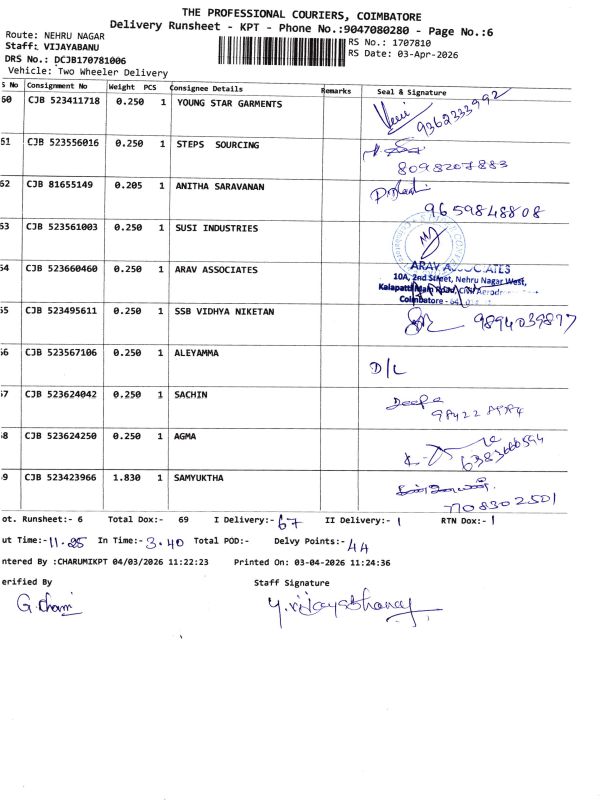 THE PROFESSIONAL COURIERS, COIMBATORE
Delivery Runsheet - KPT - Phone No.:9047080280 - Page No.:6
Route: NEHRU NAGAR
RS No.: 1707810
Staff: VIJAYABANU
RS Date: 03-Apr-2026
DRS No.: DCJB170781006
Vehicle: Two Wheeler Delivery
S No Consignment No Weight PCS Consignee Details Remarks Seal & Signature
60 CJB 523411718 0.250 1 YOUNG STAR GARMENTS 9362333992
61 CJB 523556016 0.250 1 STEPS SOURCING 8098207883
62 CJB 81655149 0.205 1 ANITHA SARAVANAN 9659848808
63 CJB 523561003 0.250 1 SUSI INDUSTRIES
64 CJB 523660460 0.250 1 ARAV ASSOCIATES
ARAV ASSOCIATES
10A, 2nd Street, Nehru Nagar West,
Kalapatti Main Road, Civil Aerodr
Coimbatore - 641
65 CJB 523495611 0.250 1 SSB VIDHYA NIKETAN 9894039877
66 CJB 523567106 0.250 1 ALEYAMMA D/L
67 CJB 523624042 0.250 1 SACHIN Deepa
68 CJB 523624250 0.250 1 AGMA
69 CJB 523423966 1.830 1 SAMYUKTHA 7708302501
ot. Runsheet:- 6 Total Dox:- 69 I Delivery:- 67 II Delivery:- 1 RTN Dox:- 1
ut Time:- 11.25 In Time:- 3.40 Total POD:- Delvy Points:- 44
ntered By :CHARUMIKPT 04/03/2026 11:22:23 Printed On: 03-04-2026 11:24:36
erified By Staff Signature